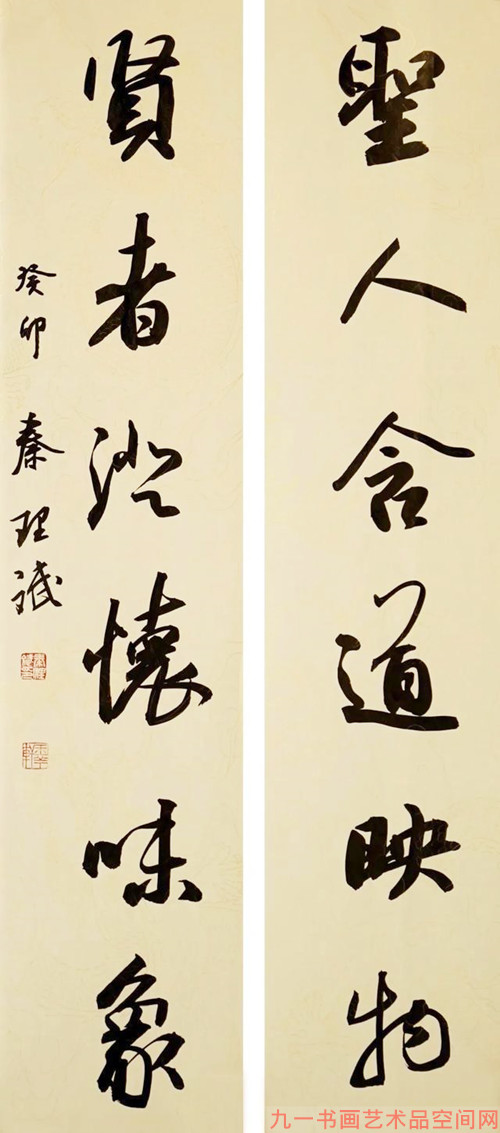 聖人含道映物
賢者澄懷味象
癸卯 秦理
九一书画艺术品空间网